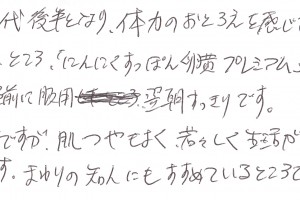 代後半となり、体力のおとろえを感じ
ところ、「にんにくすっぽん卵黄プレミアム
前に服用 翌朝すっきりです。
ですが、肌つやもよく、若々しく生活が
す。まわりの知人にもすすめているところで